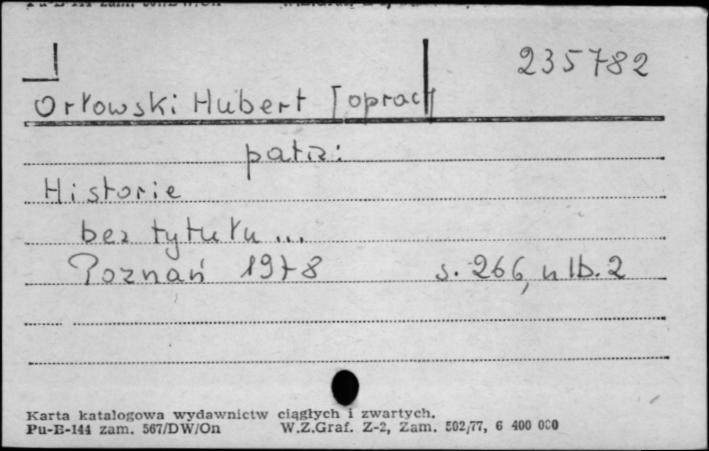 235782
Orłowski Hubert [oprac]
patrz:
Historie
bez tytułu...
Poznań 1978 s. 266, nlb. 2
Karta katalogowa wydawnictw ciągłych i zwartych.
Pu-E-144 zam. 567/DW/On W.Z.Graf. Z-2, Zam. 502/77, 6 400 000